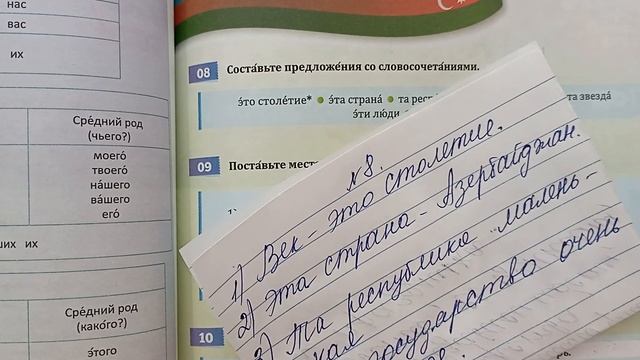 нас
вас
их
Сре́дний род
(чьего?)
моего́
твоего́
на́шего
ва́шего
его́
их их
Сре́дний род
(како́го?)
э́того
08 Соста́вьте предложе́ния со словосочета́ниями.
э́то столе́тие* • э́та страна́ • та звезда́
э́ти лю́ди
09
10
№ 8.
1) Век - это столетие.
2) Эта страна - Азербайджан.
3) Та республика малень-
кая государство очень